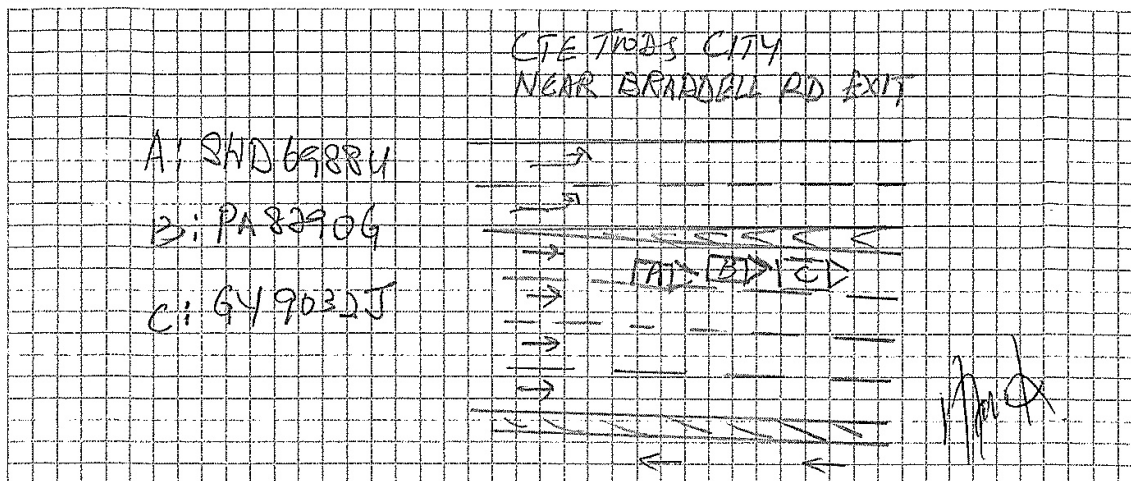 CTE TWDS CITY
NEAR BRADDELL RD EXIT
A: SHD6988U
B: PA8290G
C: GY9032J
A B C